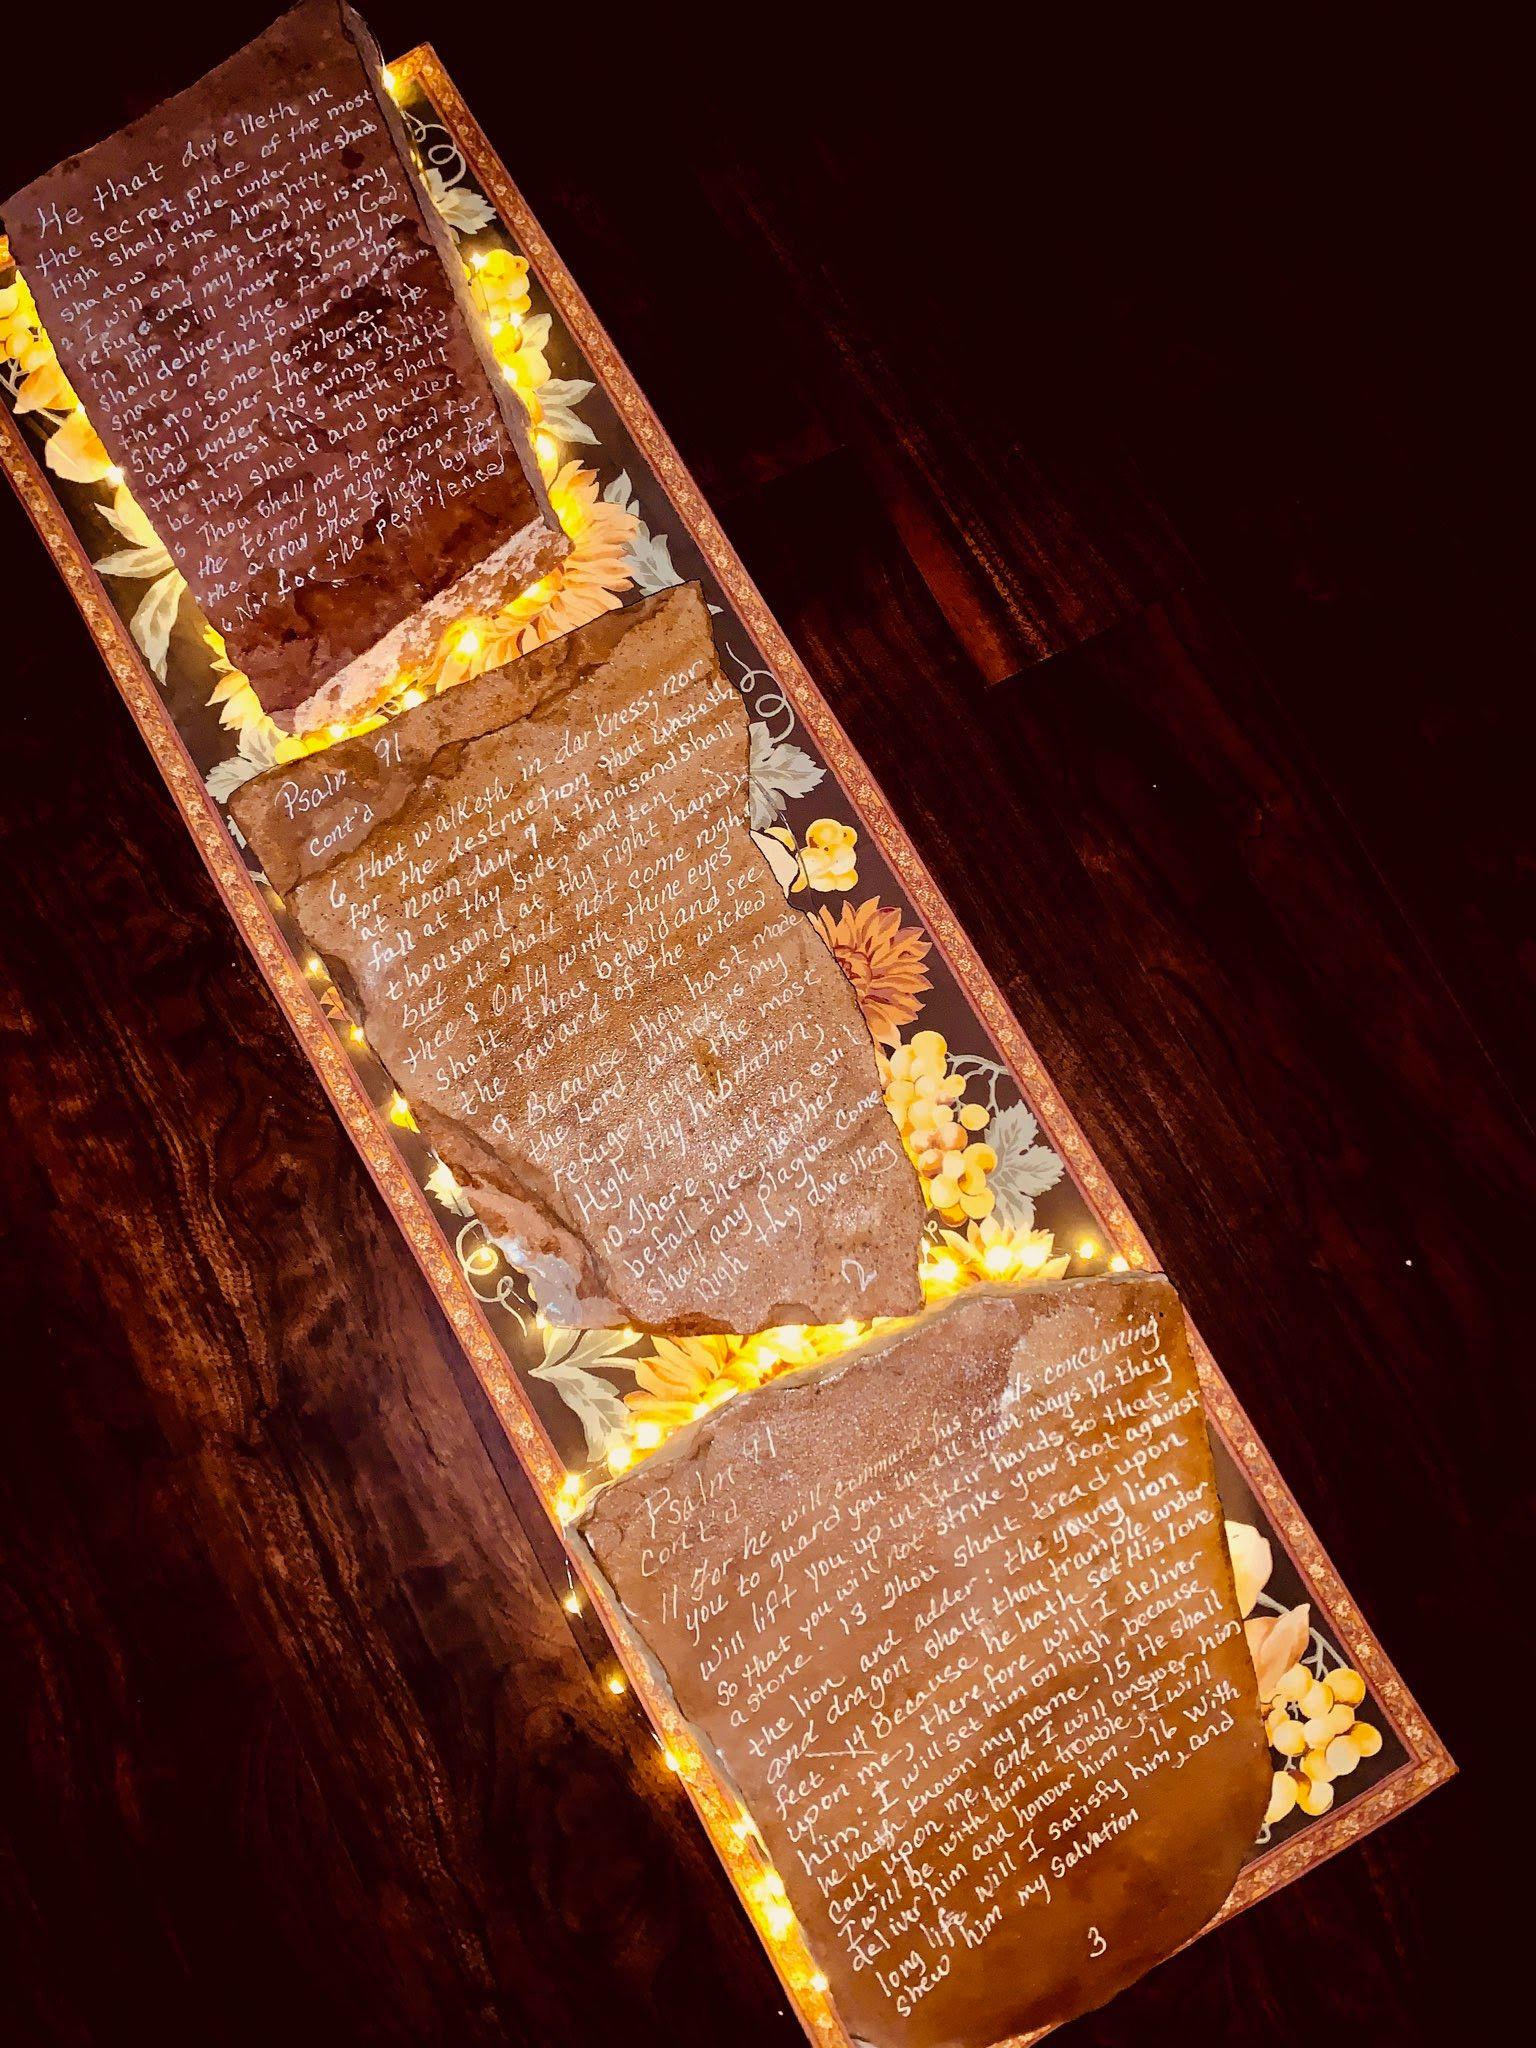 He that dwelleth in
the secret place of the most
High shall abide under the shado
shadow of the Almighty.
2 I will say of the Lord, He is my
refuge and my fortress: my God;
in Him will trust. 3 Surely he
shall deliver thee from the
snare of the fowler and from
the noisome pestilence. 4 He
shall cover thee with his,
and under his wings shalt
thou trust: his truth shall
be thy shield and buckler.
5 Thou shall not be afraid for
the terror by night; nor for
the arrow that flieth by day
6 Nor for the pestilence
Psalm 91
cont'd
6 that walketh in darkness; nor
for the destruction that wasteth
at noonday. 7 A thousand shall
fall at thy side, and ten
thousand at thy right hand;
but it shall not come nigh
thee. 8 Only with thine eyes
shalt thou behold and see
the reward of the wicked
9 Because thou hast made
the Lord, which is my
refuge, even the most
High, thy habitation;
10 There shall no evil
befall thee, neither
shall any plague come
nigh thy dwelling
2
Psalm 91
cont'd
11 For he will command his angels concerning
you to guard you in all your ways. 12 they
will lift you up in their hands, so that
so that you will not strike your foot against
a stone. 13 Thou shalt tread upon
the lion and adder: the young lion
and dragon shalt thou trample under
feet. 14 Because he hath set His love
upon me, therefore will I deliver
him: I will set him on high, because
he hath known my name. 15 He shall
call upon me, and I will answer him
I will be with him in trouble; I will
deliver him and honour him. 16 With
long life will I satisfy him, and
shew him my salvation
3